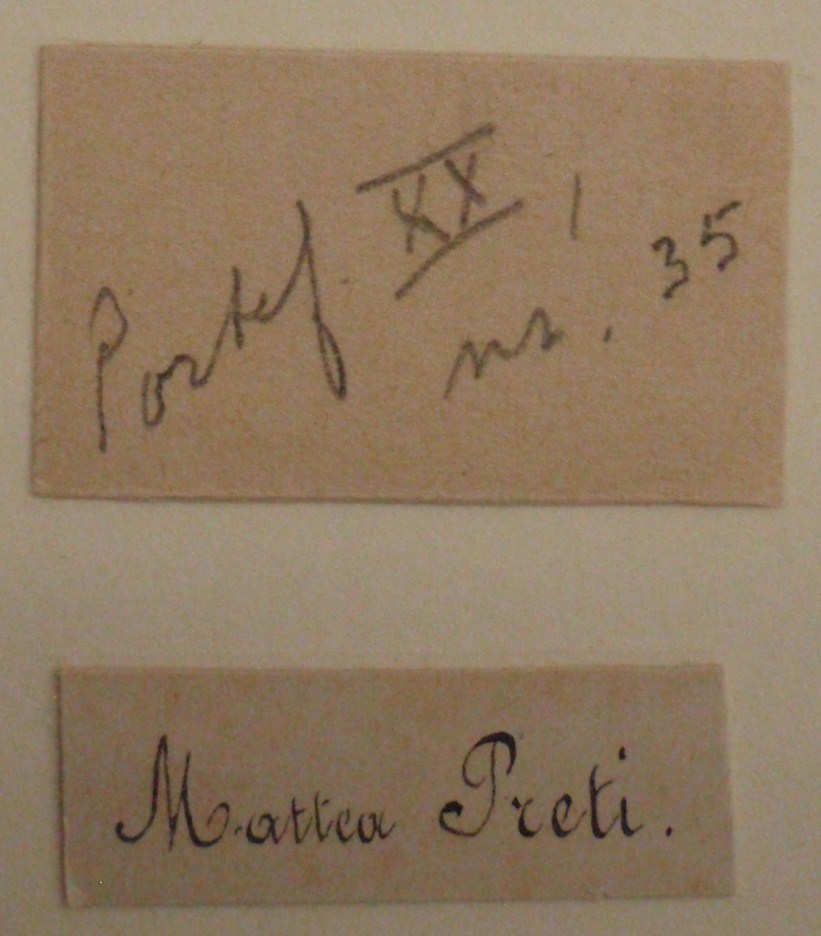 Portef. XX,
nr. 35
Mattea Preti.